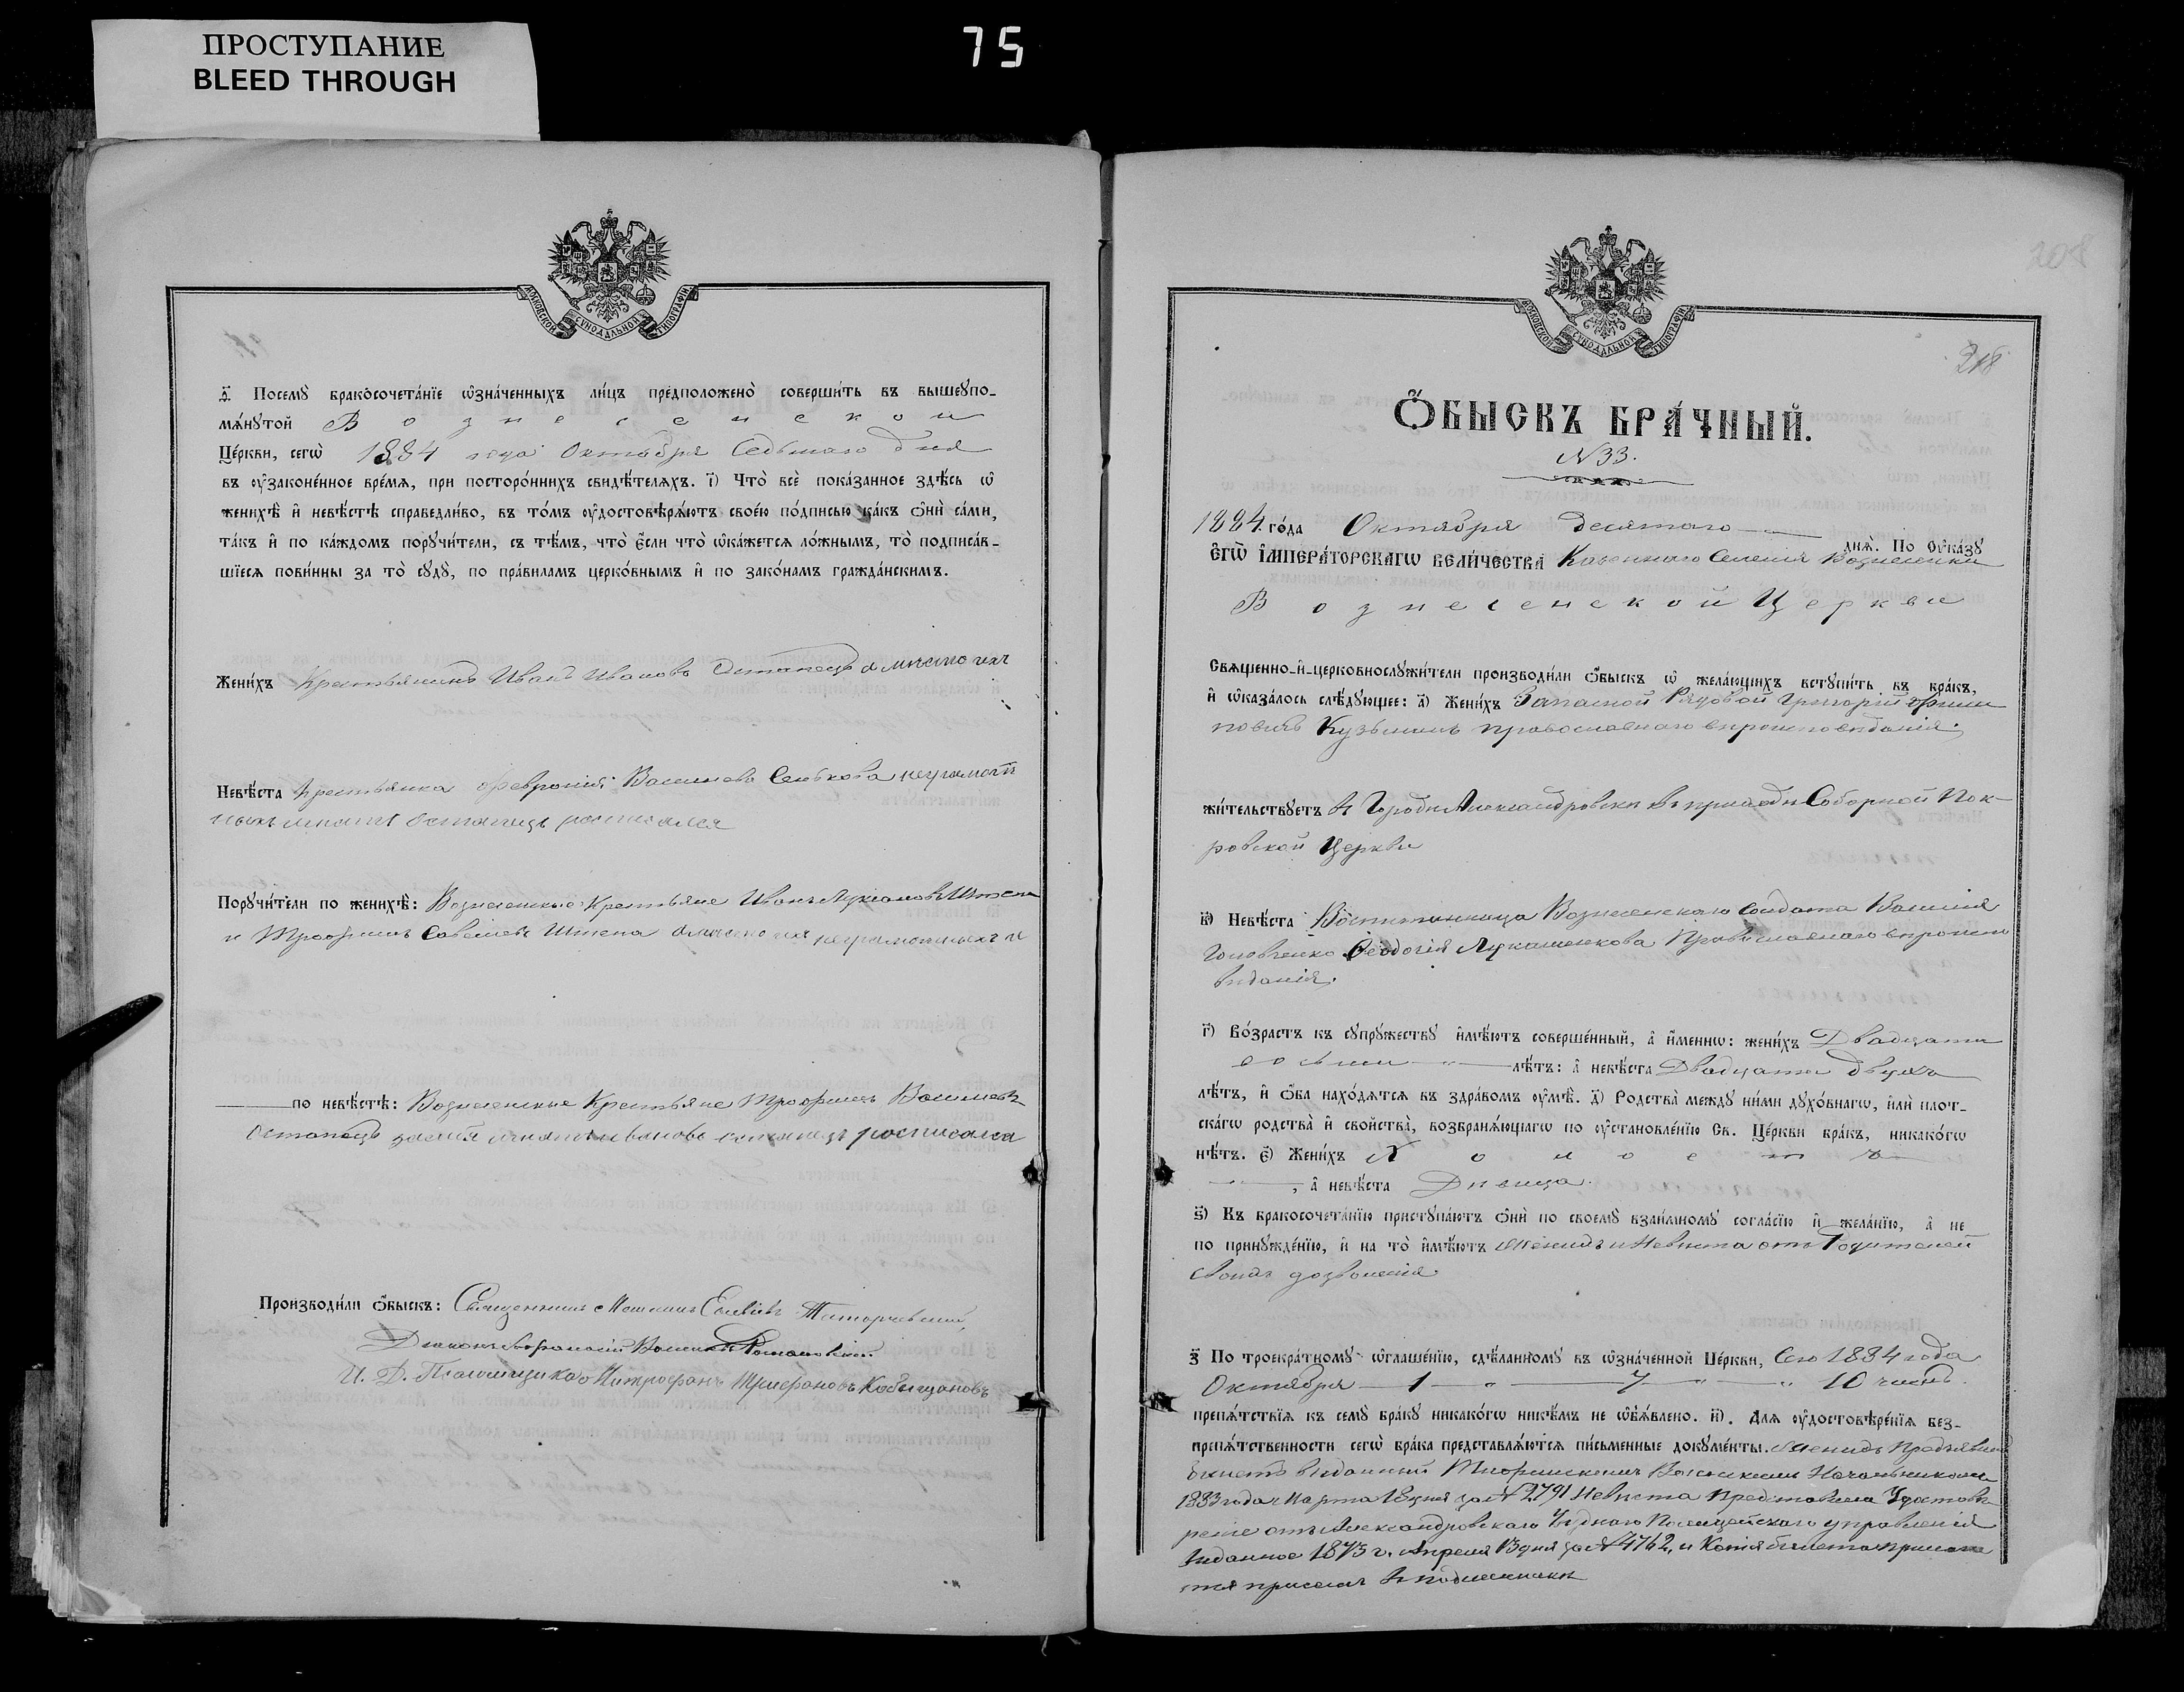 ПРОСТУПАНИЕ
BLEED THROUGH
75
МОСКОВСКОЙ СѴНОДАЛЬНОЙ ТИПОГРАФІИ
Посемꙋ̀ бракосочета́нїе ѡ҆зна́ченныхъ ли́цъ предположено̀ соверши́ть въ вышеꙋпо-
мѧ́нꙋтой Вознесенской
Це́ркви, сегѡ̀ 1884 года Октября Седьмаго дня
въ ᲂу҆законе́нное вре́мѧ, при посторо́ннихъ свидѣ́телѧхъ. і҃) Что̀ всѐ пока́занное здѣ́сь ѡ҆
женихѣ̀ и҆ невѣ́стѣ справедли́во, въ то́мъ ᲂу҆достовѣрѧ́ютъ свое́ю по́дписью ка́къ ѻ҆нѝ са́ми,
та́къ и҆ по ка́ждомъ порꙋчи́тели, съ тѣ́мъ, что̀ є҆́сли что̀ ѡ҆ка́жетсѧ ло́жнымъ, то̀ подписа́в-
шїесѧ пови́нны за то̀ сꙋдꙋ̀, по пра́виламъ церко́внымъ и҆ по зако́намъ гражда́нскимъ.
Жени́хъ Крестьянинъ Иванъ Ивановъ Остапецъ
Невѣ́ста Крестьянка Февронія Васильева Сенькова неграмотн
Остапецъ росписался
Порꙋчи́тели по женихѣ̀: Вознесенские Крестьяне Иванъ Штепа
и Трофимъ Савельевъ Штепа неграмотныхъ и
по невѣ́стѣ: Вознесенские Крестьяне Трофимъ Васильевъ
Остапецъ росписался
Производи́ли ѻ҆́быскъ: Священникъ Елисѣевъ
Диаконъ Василій Романовскій
И. Д. Псаломщика Митрофанъ Кобыщановъ
208
218
МОСКОВСКОЙ СѴНОДАЛЬНОЙ ТИПОГРАФІИ
Ѻ҆БЫСКЪ БРА́ЧНЫЙ.
N 33.
1884 го́да Октября десятаго днѧ̀. По ᲂу҆ка́зꙋ
Є҆гѡ̀ І҆мпера́торскагѡ вели́чества Казеннаго Селенія Вознесенки
Вознесенской Церкви
Свѧще́нно-и҆-церковнослꙋжи́тели производи́ли ѻ҆́быскъ ѡ҆ жела́ющихъ встꙋпи́ть въ бра́къ,
и҆ ѡ҆каза́лось слѣ́дꙋющее: а҃) Жени́хъ Запасной Рядовой Григорій Фили
повичъ Кузьминъ православнаго вѣроисповѣданія,
жи́тельствꙋетъ въ Городѣ Александровскѣ въ приходѣ Соборной Пок-
ровской Церкви
в҃) Невѣ́ста Воспитанница Вознесенскаго Солдата Василія
Головченко Ѳеодосія Лукашенкова Православнаго вѣроиспо
вѣданія.
г҃) Во́зрастъ къ сꙋпрꙋ́жествꙋ и҆мѣ́ютъ соверше́нный, а҆ и҆́менно: жени́хъ Двадцати
восьми лѣ́тъ: а҆ невѣ́ста Двадцати двухъ
лѣ́тъ, и҆ ѻ҆́ба нахо́дѧтсѧ въ здра́вомъ ᲂу҆мѣ̀. д҃) Родства̀ междꙋ ни́ми дꙋхо́внагѡ, и҆лѝ плот-
ска́гѡ родства̀ и҆ сво́йства, возбранѧ́ющагѡ по ᲂу҆становле́нїю Св. Це́ркви бра́къ, никако́гѡ
нѣ́тъ. є҃) Жени́хъ Холостъ
, а҆ невѣ́ста Дѣвица.
ѕ҃) Къ бракосочета́нїю пристꙋпа́ютъ ѻ҆нѝ по своемꙋ̀ взаи́мномꙋ согла́сїю и҆ жела́нїю, а҆ не
по принꙋжде́нїю, и҆ на то̀ и҆мѣ́ютъ женихъ и Невѣста отъ Родителей
своихъ дозволенія
з҃ По троекра́тномꙋ ѡ҆глаше́нїю, сдѣ́ланномꙋ въ ѡ҆зна́ченной Це́ркви, Сего 1884 года
Октября 1 „ 7 „ „ 10 чиселъ.
препѧ́тствїѧ къ семꙋ̀ бра́кꙋ никако́гѡ никѣ́мъ не ѡ҆б̾ѧ́влено. и҃). Для ᲂу҆достовѣре́нїѧ без-
препѧ́тственности сегѡ̀ бра́ка представлѧ́ютсѧ пи́сьменные докꙋме́нты. женихъ Предъявилъ
билетъ выданный Тифлискимъ Воинскимъ Начальникомъ
1883 года Марта 18 дня за N 2791 Невѣста Представила Удостовѣ
реніе отъ Александровскаго Уѣзднаго Полицейскаго управленія
выданное 1873 г. Апреля 13 дня за N 4762, и Копія билета прилага
ется присемъ въ подлинникѣ